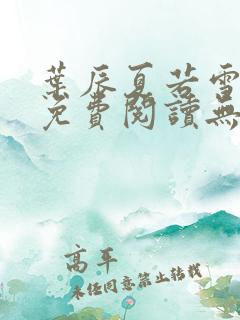 葉辰夏若雪
免費閱讀無
高平
未经同意禁止转载